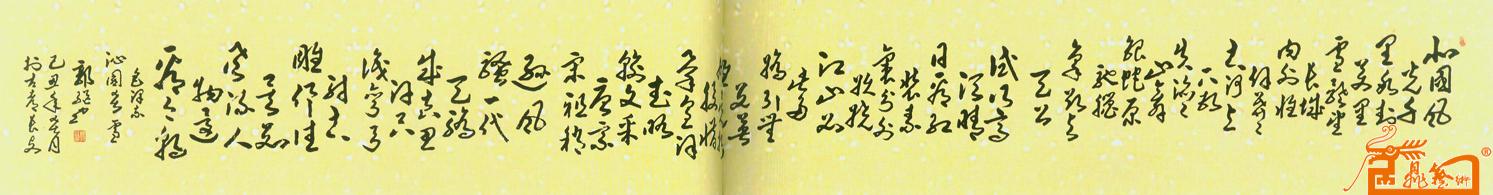 北国风
光千
里冰封
万里
雪飘望
长城
内外惟
余莽莽
大河上
下顿
失滔滔
山舞
银蛇原
驰蜡
象欲与
天公
试比高
须晴
日看红
装素
裹分外
妖娆
江山如
此多
娇引无
数英
雄竞
折腰惜
秦皇汉
武略
输文采
唐宗
宋祖稍
逊风
骚一代
天骄
成吉思
汗只
识弯弓
射大
雕俱往
矣数
风流人
物还
看今朝
毛泽东
沁园春雪
己丑年
长安